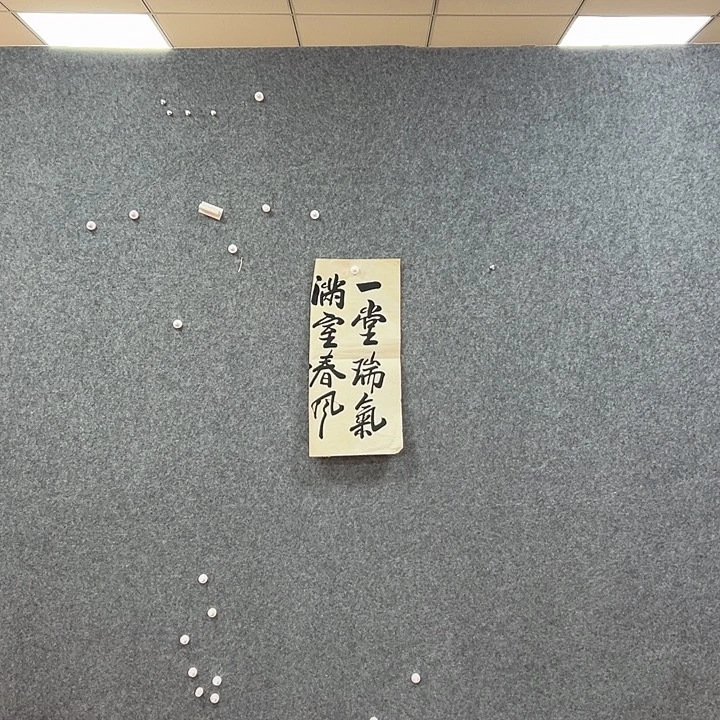 一堂瑞氣
滿室春风